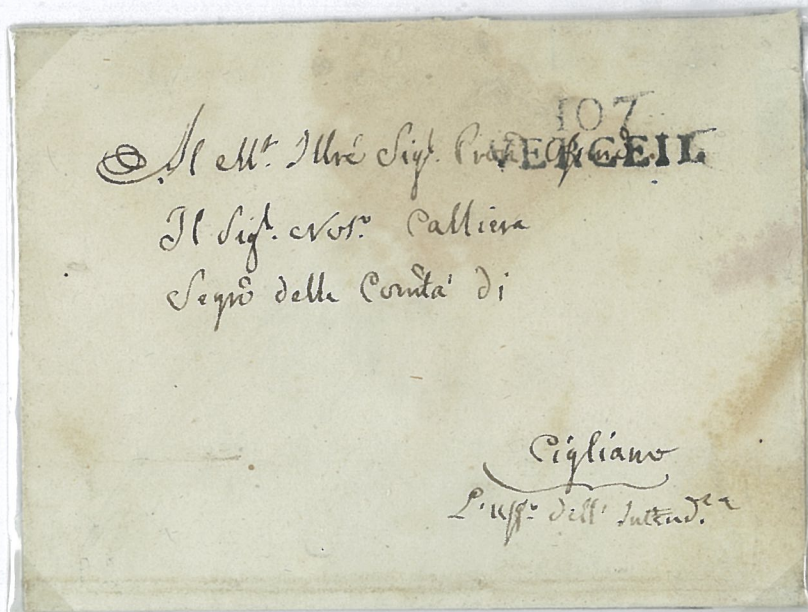 107
VERCEIL
Al M.to Illre Sig.r
Il Sig.r Not.o Calliera
Segro delle Comtà di
Cigliano
L'Uffo dell' Intend.za